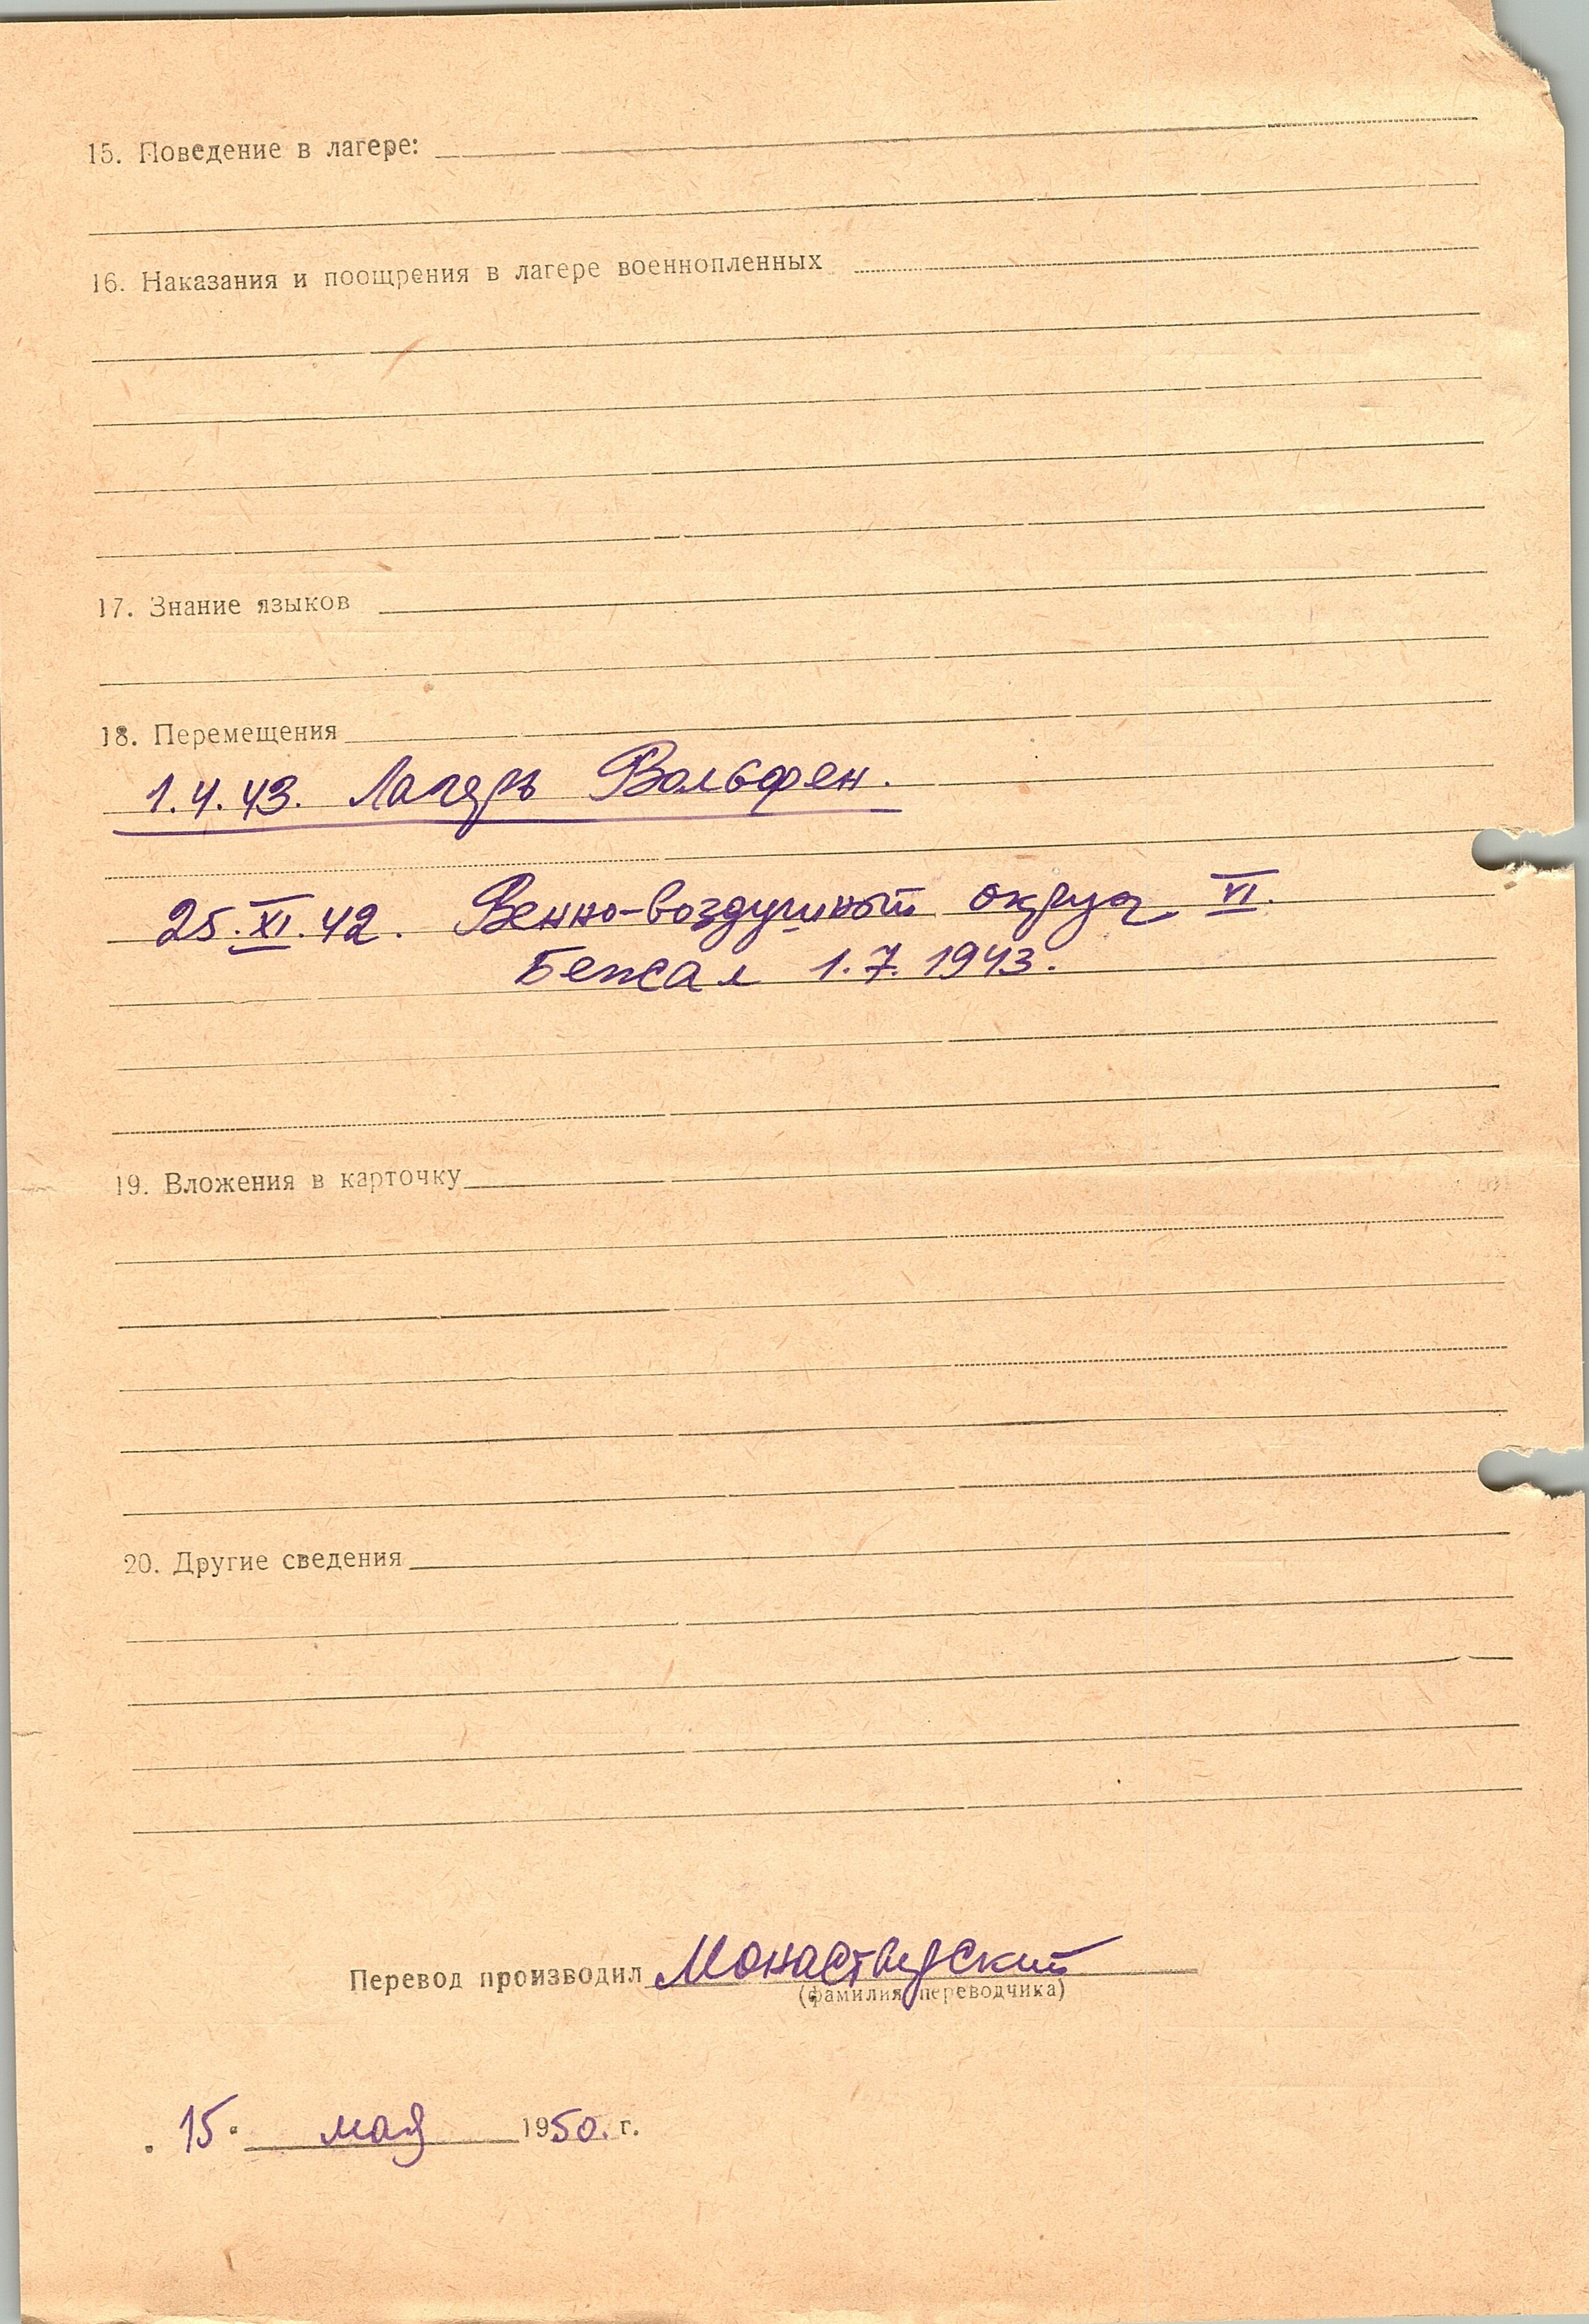 15. Поведение в лагере:
16. Наказания и поощрения в лагере военнопленных
17. Знание языков
18. Перемещения
1.4.43. Лагерь Вольфен.
25.XI.42. Венно-воздушный округ VI.
Бежал 1.7.1943.
19. Вложения в карточку
20. Другие сведения
Перевод производил Монастырский
(фамилия переводчика)
„15“ мая 1950. г.